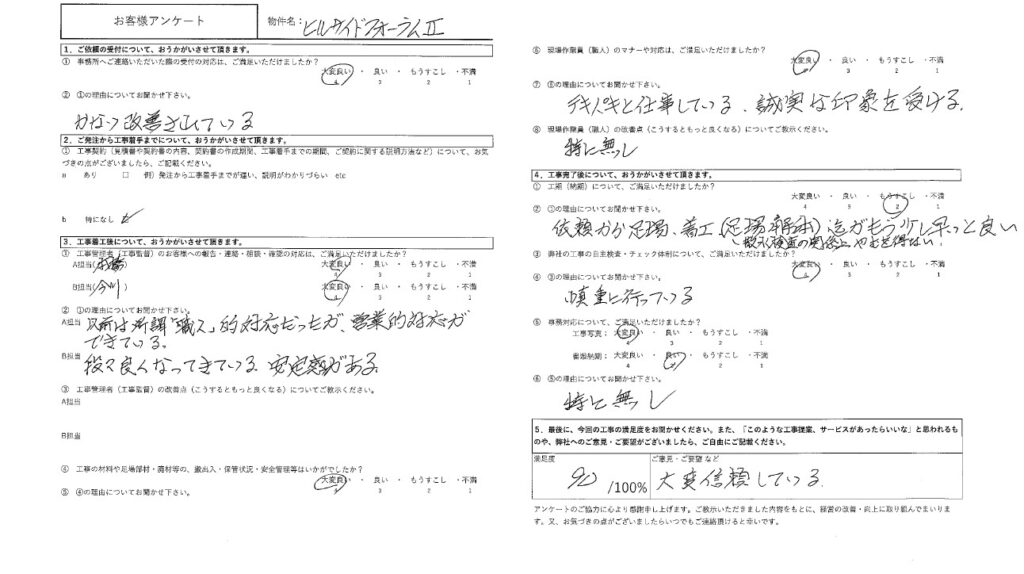 お客様アンケート
物件名：ヒルサイドフォーラムⅡ
1．ご依頼の受付について、おうかがいさせて頂きます。
① 事務所へご連絡いただいた際の受付の対応は、ご満足いただけましたか？
大変良い ・ 良い ・ もうすこし ・不満
4 3 2 1
② ①の理由についてお聞かせ下さい。
かなり改善されている
2．ご発注から工事着手までについて、おうかがいさせて頂きます。
① 工事契約（見積書や契約書の内容、契約書の作成期間、工事着手までの期間、ご契約に関する説明方法など）について、お気
づきの点がございましたら、ご記載ください。
a あり □ 例）発注から工事着手までが遅い、説明がわかりづらい etc
b 特になし
3．工事着工後について、おうかがいさせて頂きます。
① 工事管理者（工事監督）のお客様への報告・連絡・相談・確認の対応は、ご満足いただけましたか？
A担当( ) 大変良い ・ 良い ・ もうすこし ・不満
4 3 2 1
B担当( 今川 ) 大変良い ・ 良い ・ もうすこし ・不満
4 3 2 1
② ①の理由についてお聞かせ下さい。
A担当 以前は所謂「職人」的対応だったが、営業的対応が
できている。
B担当 段々良くなってきている 安定感がある
③ 工事管理者（工事監督）の改善点（こうするともっと良くなる）についてご教示ください。
A担当
B担当
④ 工事の材料や足場部材・廃材等の、搬出入・保管状況・安全管理等はいかがでしたか？
大変良い ・ 良い ・ もうすこし ・不満
4 3 2 1
⑤ ④の理由についてお聞かせ下さい。
⑥ 現場作業員（職人）のマナーや対応は、ご満足いただけましたか？
大変良い ・ 良い ・ もうすこし ・不満
4 3 2 1
⑦ ⑥の理由についてお聞かせ下さい。
テキパキと仕事している、誠実な印象を受ける。
⑧ 現場作業員（職人）の改善点（こうするともっと良くなる）についてご教示ください。
特に無し
4．工事完了後について、おうかがいさせて頂きます。
① 工期（納期）について、ご満足いただけましたか？
大変良い ・ 良い ・ もうすこし ・不満
4 3 2 1
② ①の理由についてお聞かせ下さい。
依頼から足場、着工（足場解体）迄がもう少し早いと良い
検査の関係上やむを得ない。
③ 弊社の工事の自主検査・チェック体制について、ご満足いただけましたか？
大変良い ・ 良い ・ もうすこし ・不満
4 3 2 1
④ ③の理由についてお聞かせ下さい。
慎重に行っている
⑤ 事務対応について、ご満足いただけましたか？
工事写真： 大変良い ・ 良い ・ もうすこし ・不満
4 3 2 1
書類納期： 大変良い ・ 良い ・ もうすこし ・不満
4 3 2 1
⑥ ⑤の理由についてお聞かせ下さい。
特に無し
5．最後に、今回の工事の満足度をお聞かせください。また、「このような工事提案、サービスがあったらいいな」と思われるも
のや、弊社へのご意見・ご要望がございましたら、ご自由にご記載ください。
満足度 ご意見・ご要望 など
90 /100% 大変信頼している。
アンケートのご協力に心より感謝申し上げます。ご教示いただきました内容をもとに、経営の改善・向上に取り組んでまいりま
す。又、お気づきの点がございましたらいつでもご連絡頂けると幸いです。